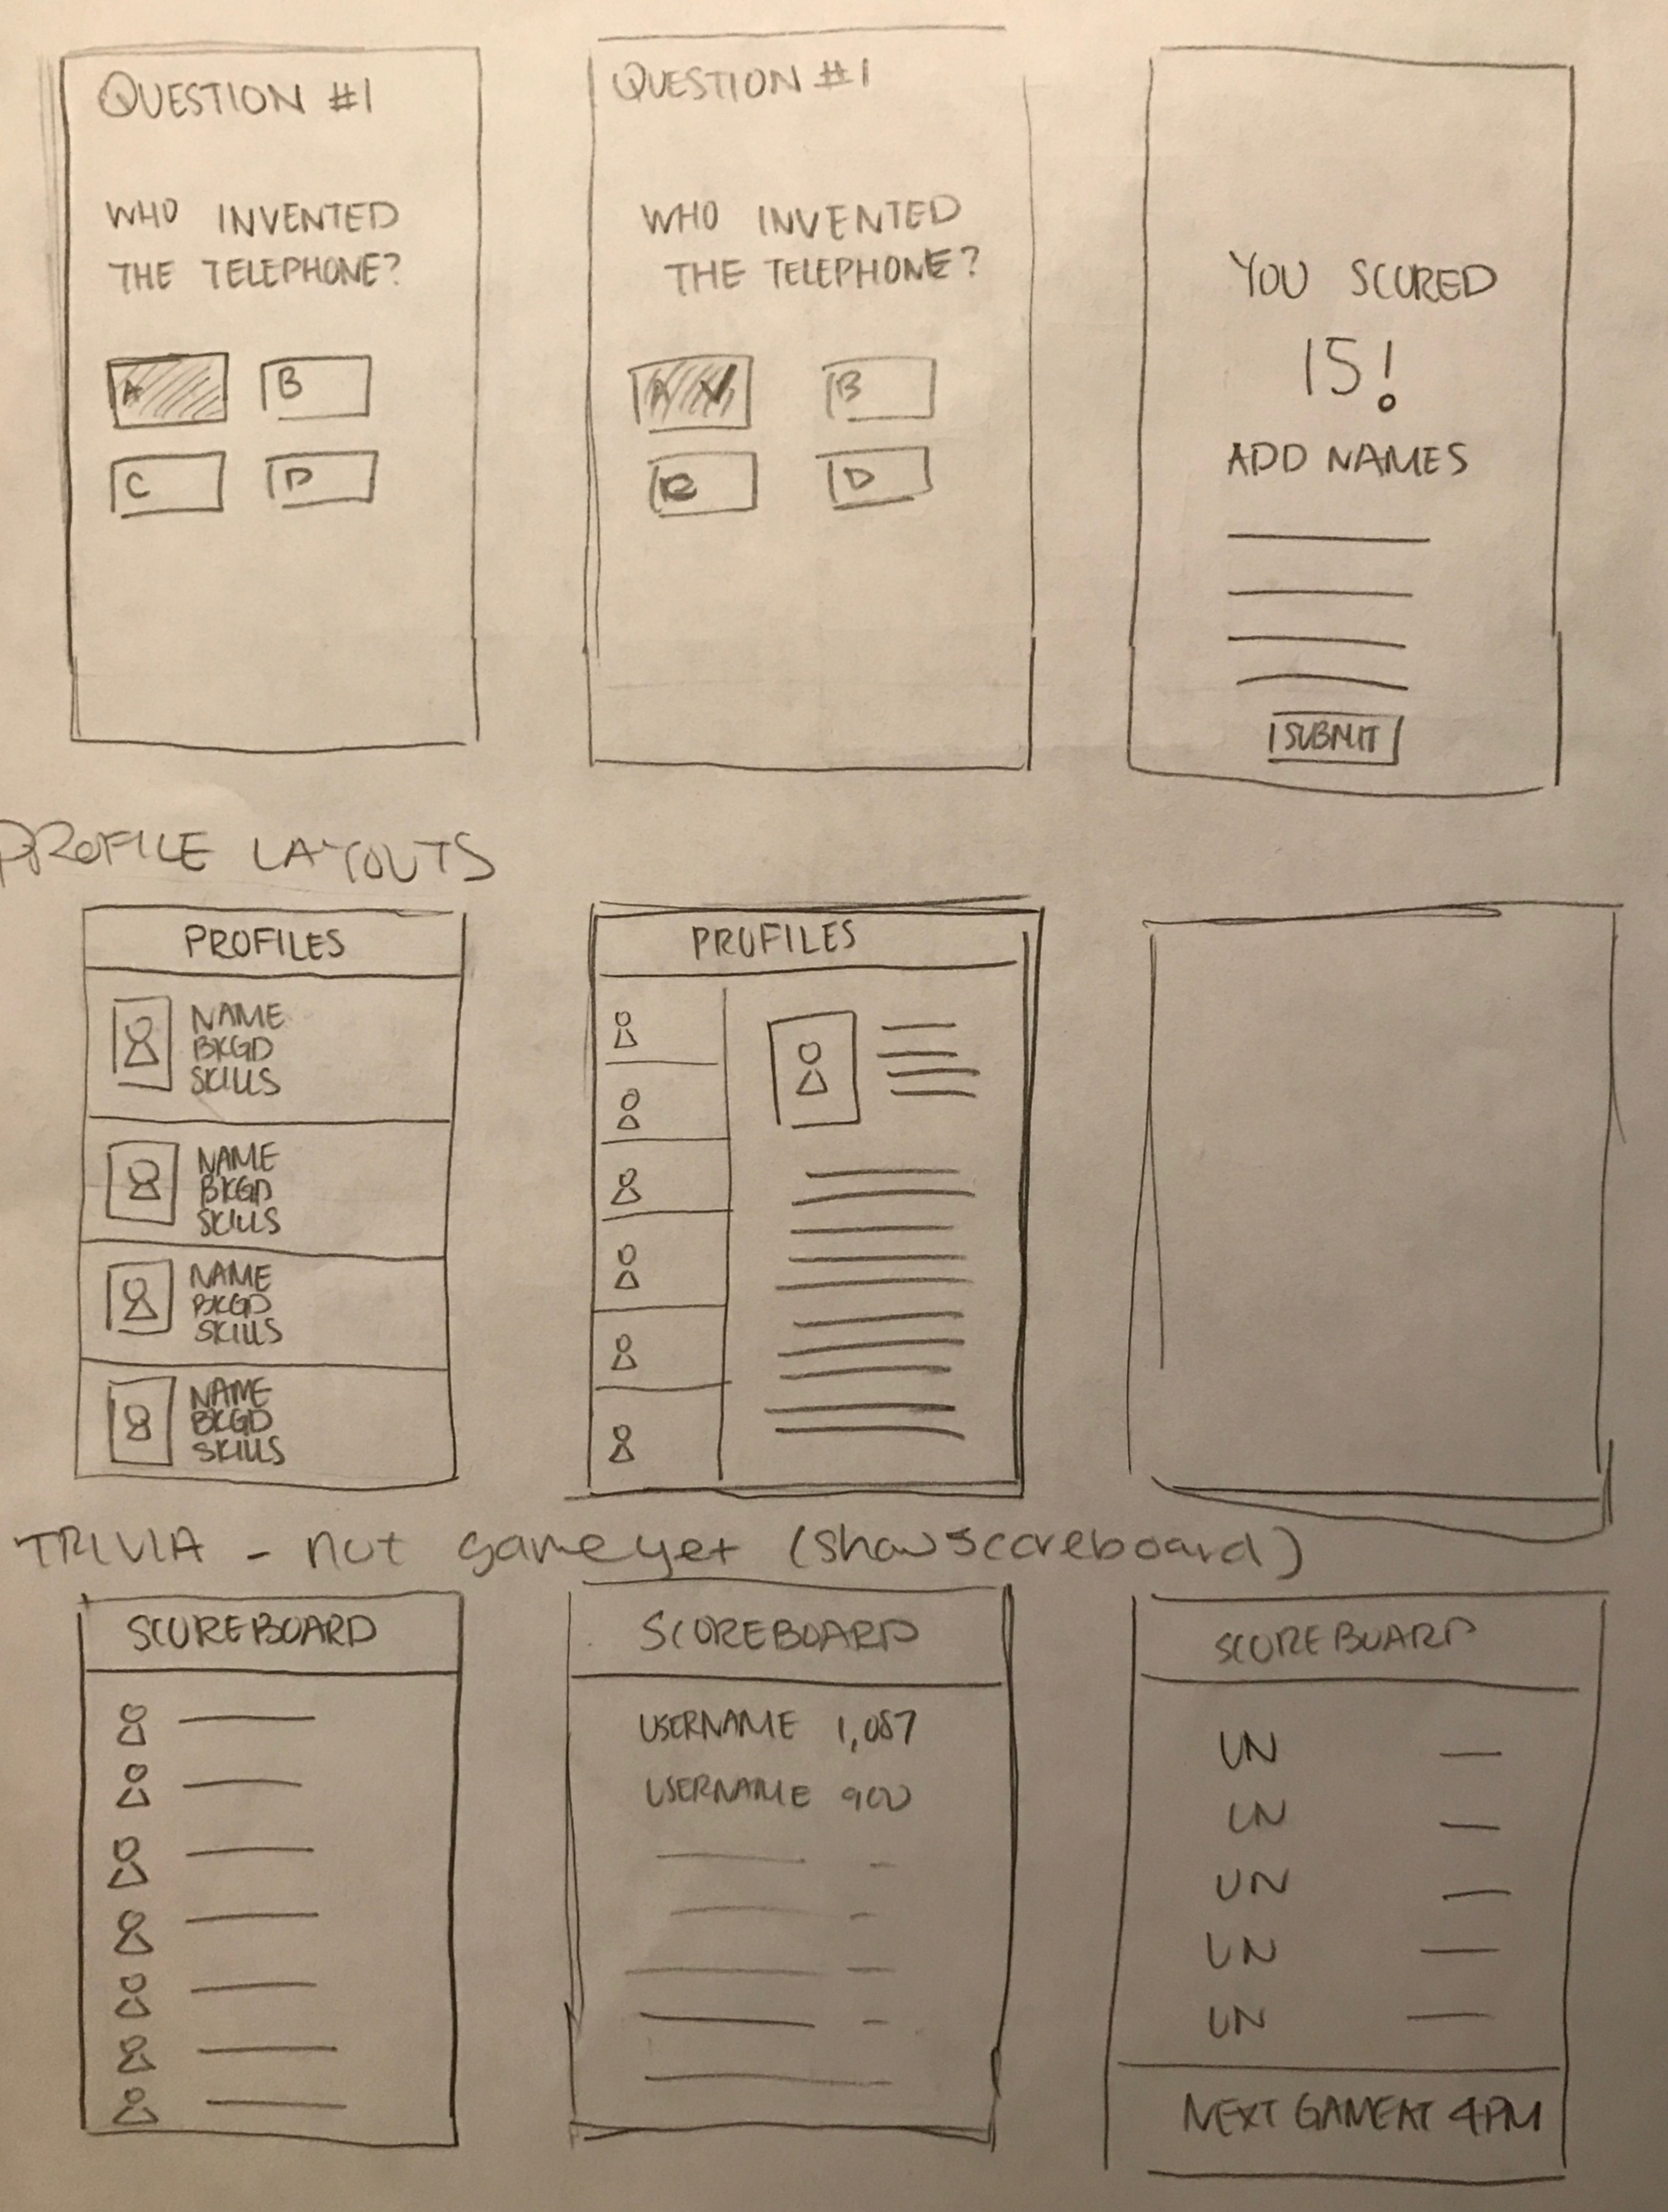 QUESTION #1
WHO INVENTED
THE TELEPHONE?
A B
C D
QUESTION #1
WHO INVENTED
THE TELEPHONE?
A B
D
YOU SCORED
15!
ADD NAMES
SUBMIT
PROFILE LAYOUTS
PROFILES
NAME
BKGD
SKILLS
NAME
BKGD
SKILLS
NAME
BKGD
SKILLS
NAME
BKGD
SKILLS
PROFILES
TRIVIA - not game yet (show scoreboard)
SCOREBOARD
SCOREBOARD
USERNAME 1,087
USERNAME 900
SCOREBOARD
UN
UN
UN
UN
UN
NEXT GAME AT 4PM